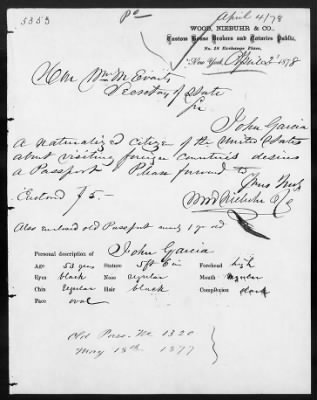 5353
April 4/78
WOOD, NIEBUHR & CO.,
Custom House Brokers and Notaries Public,
No. 18 Exchange Place,
New York, April 2d 1878
Hon Wm M Evarts
Secretary of State
Sir
John Garcia
A naturalized citizen of the United States
about visiting foreign countries desires
a Passport Please forward to
Yours Truly
Wood Niebuhr & Co
Enclosed $5.-
Also enclosed old Passport nearly 1 yr old
Personal description of John Garcia
Age 53 yrs Stature 5ft 6 in Forehead high
Eyes black Nose regular Mouth regular
Chin regular Hair black Complexion dark
Face oval
Old Pass. No 1320
May 18th 1877